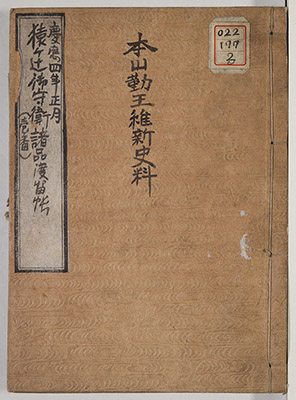 022
177
3
本山勤王維新史料
慶應四年正月
猿ヶ辻御守衛諸品渡留帳
(壱番)